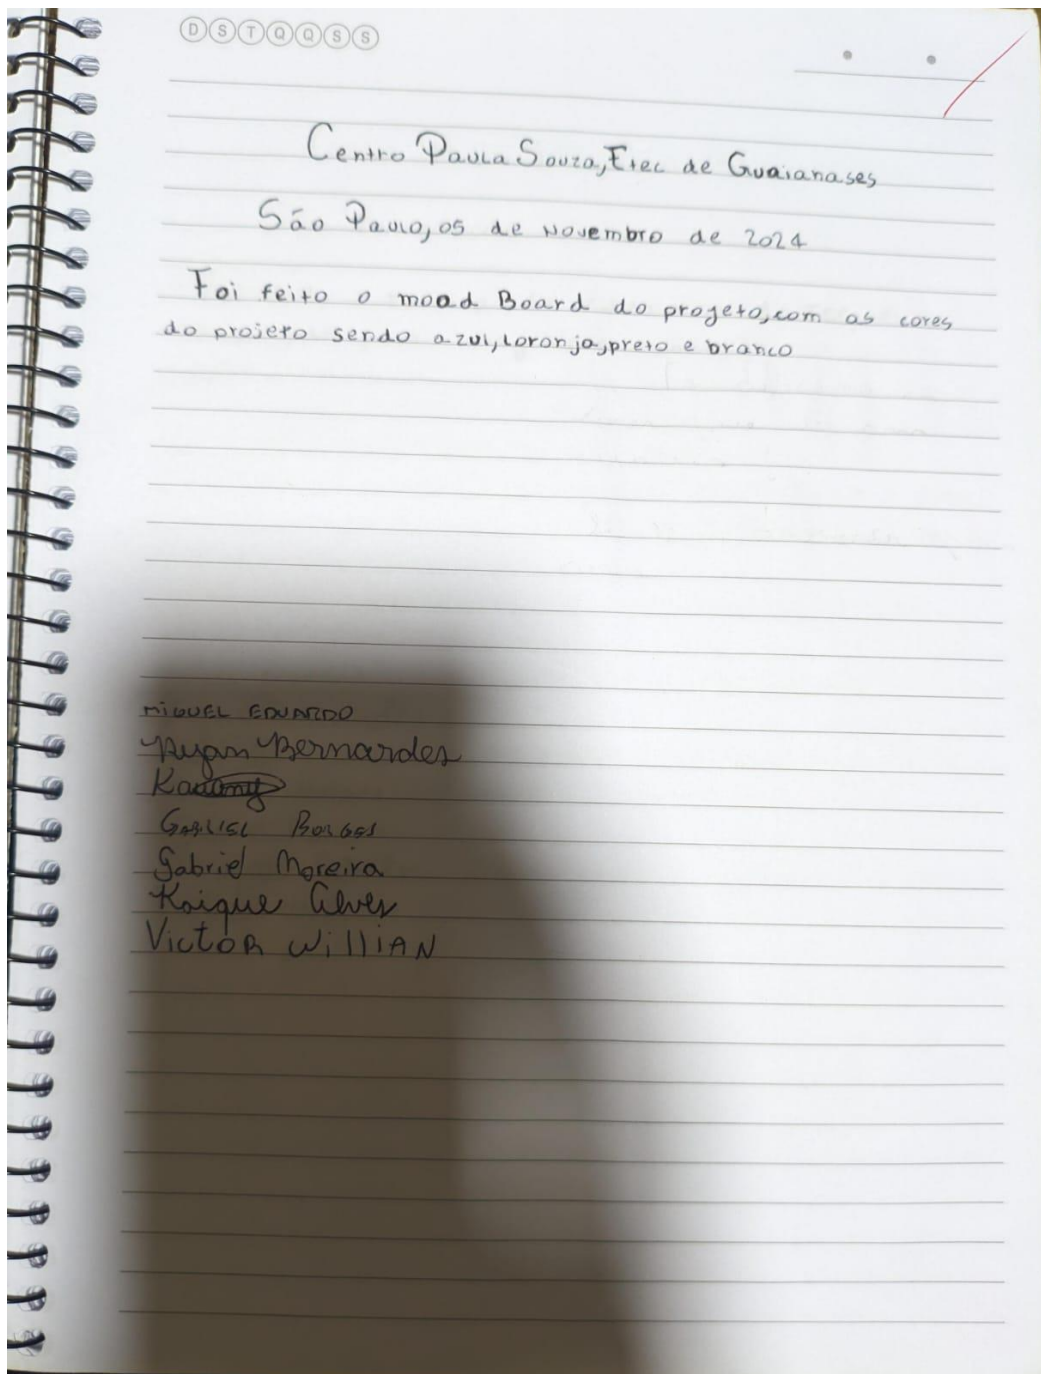 D S T Q Q S S
Centro Paula Souza, Etec de Guaianases
São Paulo, 05 de Novembro de 2024
Foi feito o moad Board do projeto, com as cores
do projeto sendo azul, laranja, preto e branco
MIGUEL EDUARDO
Ryan Bernardes
GABRIEL BORGES
Gabriel Moreira
Kaique Alves
Victor Willian